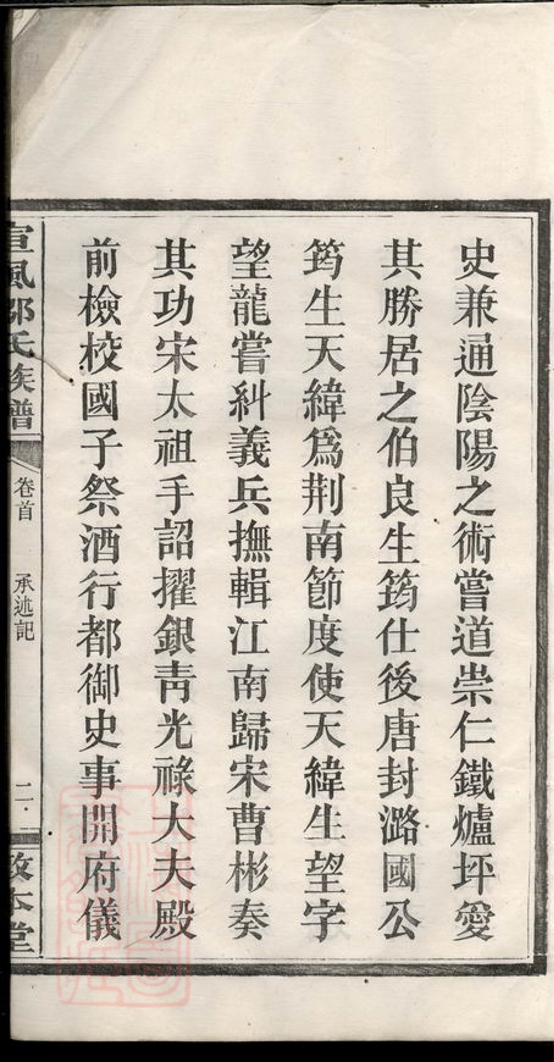 史兼通陰陽之術嘗道崇仁鐵爐坪愛
其勝居之伯良生筠仕後唐封潞國公
筠生天緯爲荆南節度使天緯生望字
望龍嘗糾義兵撫輯江南歸宋曹彬奏
其功宋太祖手詔擢銀青光祿大夫殿
前檢校國子祭酒行都御史事開府儀
宣風鄒氏族譜
卷首
承述記
二
敦本堂